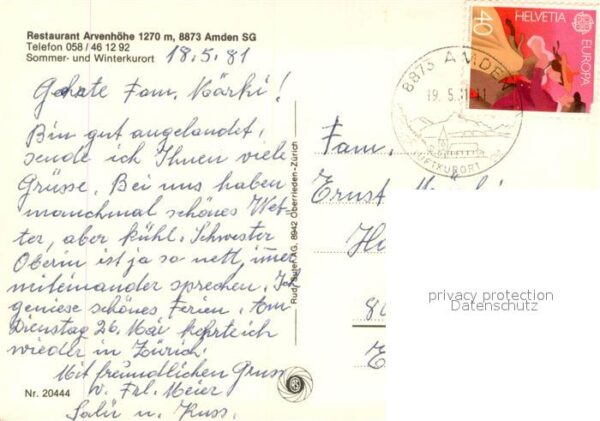 Restaurant Arvenhöhe 1270 m, 8873 Amden SG
Telefon 058 / 46 12 92
Sommer- und Winterkurort
18.5.81
Fam. Märki!
Bin gut angelandet,
sende ich Ihnen viele
Grüsse. Bei uns haben
manchmal schönes Wet-
ter, aber kühl. Schwester
Oberin ist ja so nett, immer
miteinander sprechen. Ich
geniese schönes Ferien. Am
Dienstag 26. Mai kehrte ich
wieder in Zürich.
Mit freundlichen Gruss
v. Frl. Meier
Salü u. Kuss.
Nr. 20444
Rud. Suter AG, 8942 Oberrieden-Zürich
40
HELVETIA
EUROPA
8873 AMDEN
19.5.81-11
LUFTKURORT
Fam.
Ernst
privacy protection
Datenschutz